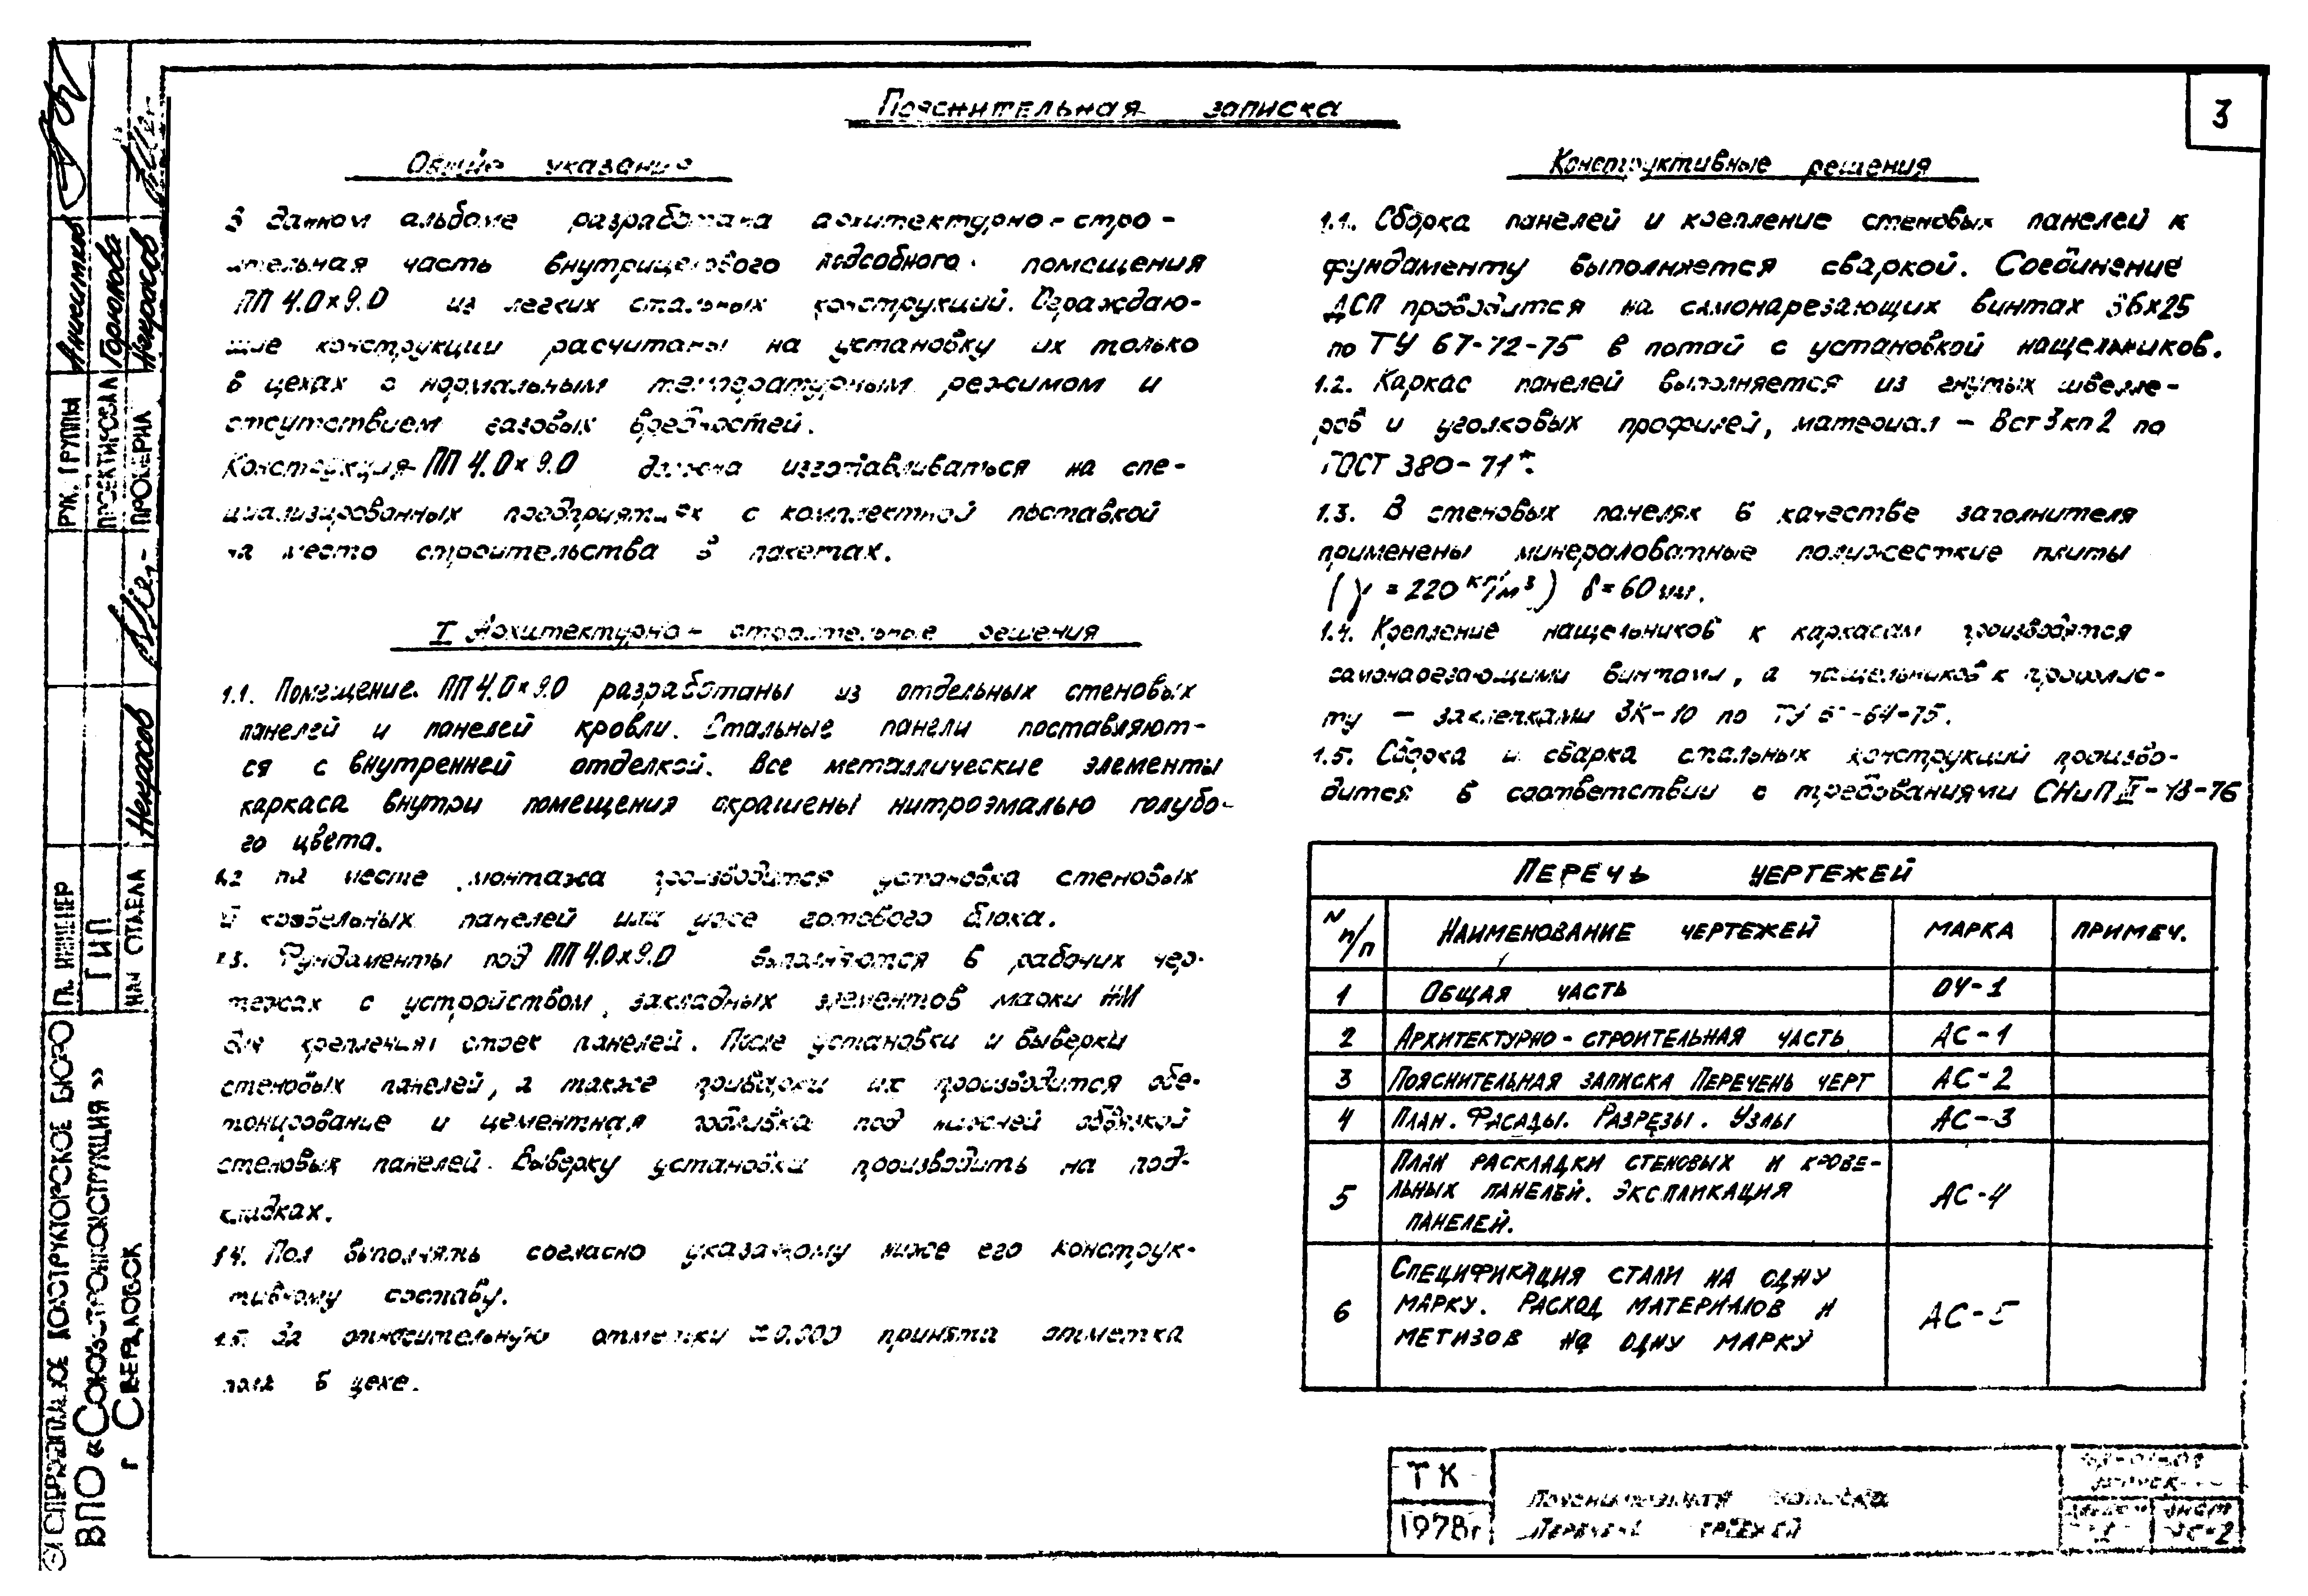 Пояснительная записка
3
Общие указания
В данном альбоме разработана архитектурно-стро-
ительная часть внутрицехового подсобного помещения
ПП 4.0×9.0 из легких стальных конструкций. Ограждаю-
щие конструкции расчитаны на установку их только
в цехах с нормальным температурным режимом и
отсутствием газовых вредностей.
Конструкция ПП 4.0×9.0 должна изготавливаться на спе-
циализированных предприятиях с комплектной поставкой
на место строительства в пакетах.
I Архитектурно-строительные решения
1.1. Помещение ПП 4.0×9.0 разработаны из отдельных стеновых
панелей и панелей кровли. Стальные панели поставляют-
ся с внутренней отделкой. Все металлические элементы
каркаса внутри помещения окрашены нитроэмалью голубо-
го цвета.
1.2 На месте монтажа производится установка стеновых
и кровельных панелей или уже готового блока.
1.3. Фундаменты под ПП 4.0×9.0 выполняются в рабочих чер-
тежах с устройством закладных элементов марки МИ
для крепления стоек панелей. После установки и выверки
стеновых панелей, а также приварки их производится обе-
тонирование и цементная подливка под нижней обвязкой
стеновых панелей. Выверку установки производить на под-
кладках.
1.4. Пол выполнять согласно указанному ниже его конструк-
тивному составу.
1.5. За относительную отметку ±0.000 принята отметка
пола в цехе.
Конструктивные решения
1.1. Сборка панелей и крепление стеновых панелей к
фундаменту выполняется сваркой. Соединение
ДСП проводится на самонарезающих винтах В6×25
по ТУ 67-72-75 в потай с установкой нащельников.
1.2. Каркас панелей выполняется из гнутых швелле-
ров и уголковых профилей, материал - Вст3кп2 по
ГОСТ 380-71*.
1.3. В стеновых панелях в качестве заполнителя
применены минераловатные полужесткие плиты
(γ = 220 кг/м³) δ = 60 мм.
1.4. Крепление нащельников к каркасам производятся
самонарезающими винтами, а нащельников к профлис-
ту - заклепками ЗК-10 по ТУ
1.5. Сборка и сварка стальных конструкций произво-
дится в соответствии с требованиями СНиП III-18-76
Перечь чертежей
N п/п Наименование чертежей Марка Примеч.
1 Общая часть ОЧ-1
2 Архитектурно-строительная часть АС-1
3 Пояснительная записка Перечень черт АС-2
4 План. Фасады. Разрезы. Узлы АС-3
5 План раскладки стеновых и крове-
льных панелей. Экспликация
панелей. АС-4
6 Спецификация стали на одну
марку. Расход материалов и
метизов на одну марку АС-5
ТК
1978г
Пояснительная записка
Перечень чертежей
лист
АС-2
Рук. группы Аникитин
Проектировал Горюнова
Проверил Некрасов
Гл. инженер
ГИП
Нач отдела Некрасов
конструкторское бюро
ВПО «Союзстройконструкция»
г Свердловск